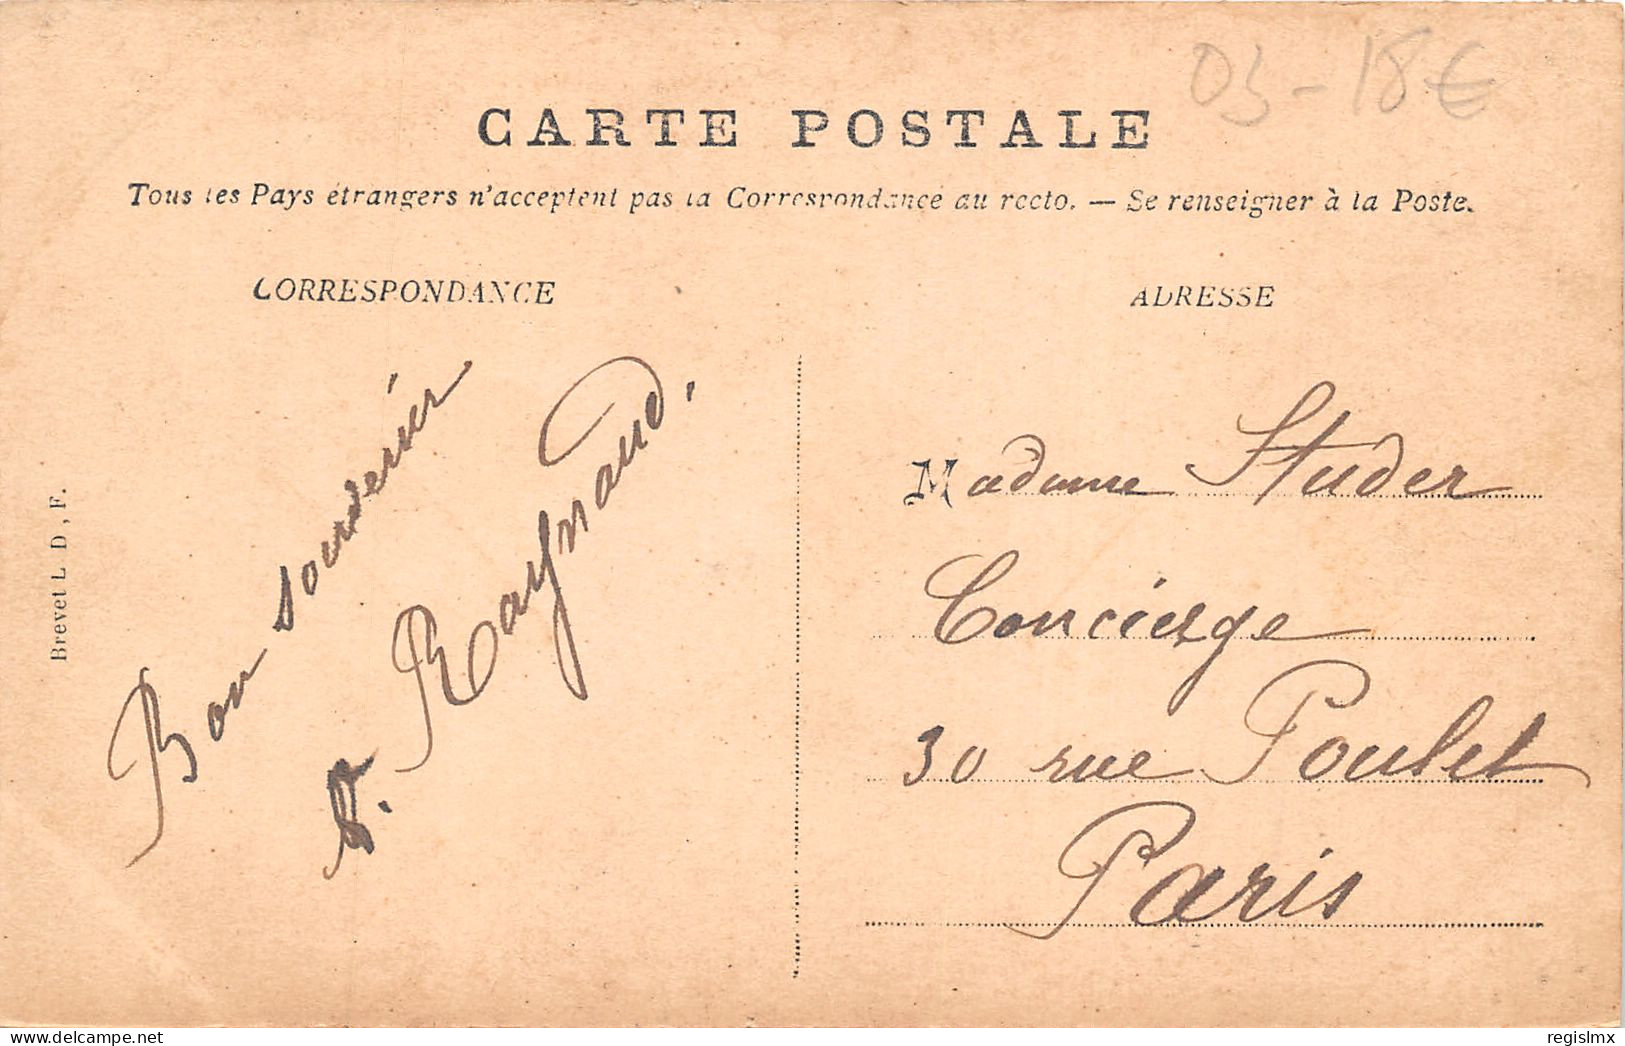 03 - 18€
CARTE POSTALE
Tous les Pays étrangers n'acceptent pas la Correspondance au recto. — Se renseigner à la Poste.
CORRESPONDANCE
Bon souvenir
Raynaud.
Brevet L D, F.
ADRESSE
Madame Studer
Concierge
30 rue Poulet
Paris
DELCAMPE.NET
regislmx